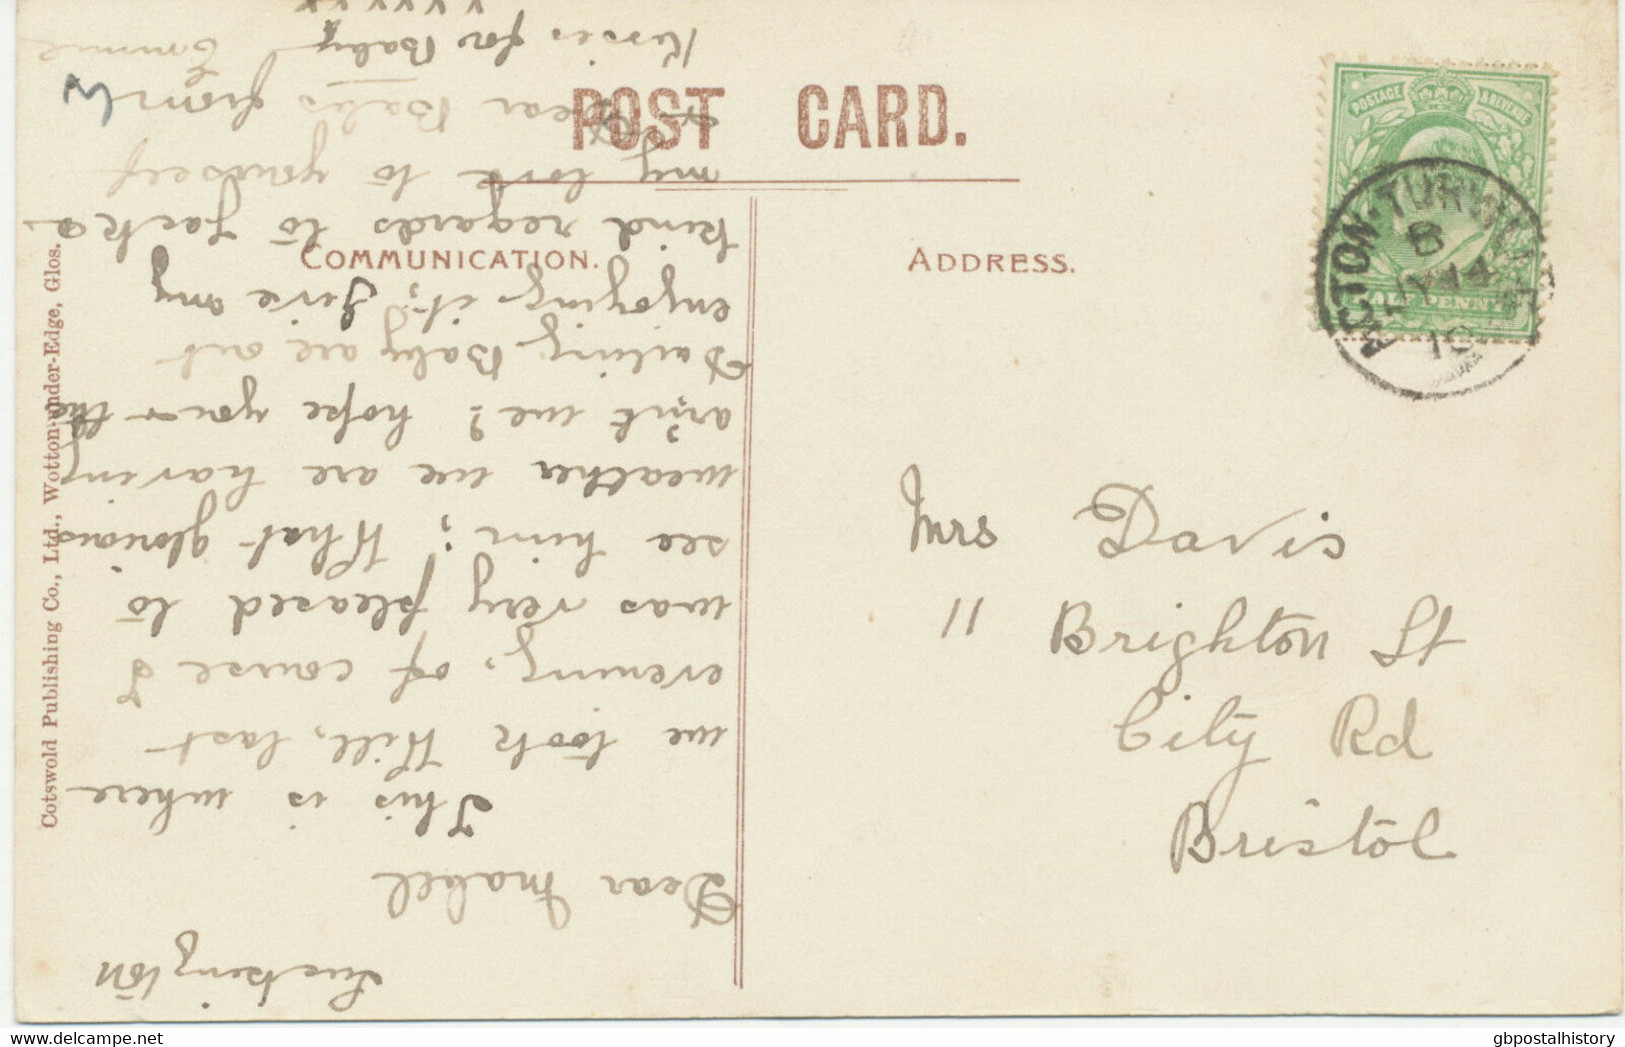 POST CARD.
COMMUNICATION.
ADDRESS.
Cotswold Publishing Co., Ltd., Wotton-under-Edge, Glos.
POSTAGE & REVENUE
HALF PENNY
ACTON·TURVILLE
B
JY 14
10
Mrs Davis
11 Brighton St
City Rd
Bristol
Luckington
Dear Mabel
This is where
we took Will, last
evening, of course I
was very pleased to
see him; What glorious
weather we are having
ain't we? hope you & the
Darling Baby are out
enjoying it, Give my
kind regards to Jack &
my love to yourself
& dear Babs from
Kisses for Baby Emmie
x x x x x x
gbpostalhistory